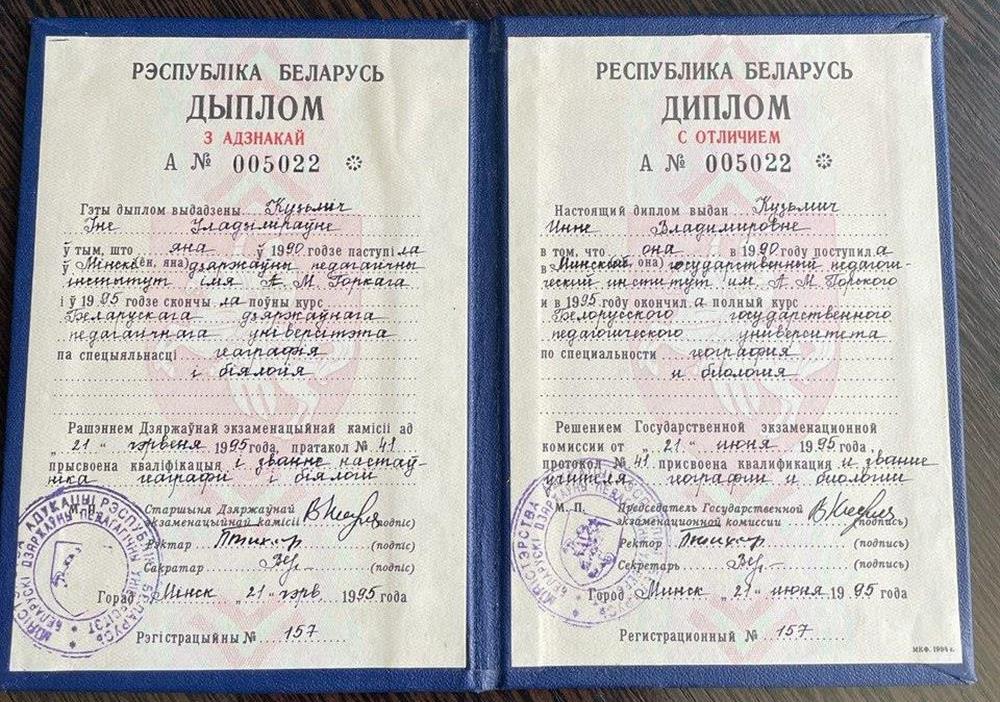 РЭСПУБЛІКА БЕЛАРУСЬ
ДЫПЛОМ
З АДЗНАКАЙ
А № 005022
Гэты дыплом выдадзены Кузьміч
Іне Уладзіміраўне
ў тым, што яна ў 1990 годзе паступіла
(ён, яна)
ў Мінскі дзяржаўны педагагічны
інстытут імя А. М. Горкага
і ў 1995 годзе скончыла поўны курс
Беларускага дзяржаўнага
педагагічнага універсітэта
па спецыяльнасці геаграфія
і біялогія
Рашэннем Дзяржаўнай экзаменацыйнай камісіі ад
„21" чэрвеня 1995 года, пратакол № 41
прысвоена кваліфікацыя і званне настаў-
ніка геаграфіі і біялогіі
М. П.
Старшыня Дзяржаўнай
экзаменацыйнай камісіі (подпіс)
Рэктар (подпіс)
Сакратар (подпіс)
Горад Мінск „21" чэрв. 1995 года
Рэгістрацыйны № 157
МІНІСТЭРСТВА АДУКАЦЫІ РЭСПУБЛІКІ БЕЛАРУСЬ
БЕЛАРУСКІ ДЗЯРЖАЎНЫ ПЕДАГАГІЧНЫ УНІВЕРСІТЭТ
РЕСПУБЛИКА БЕЛАРУСЬ
ДИПЛОМ
С ОТЛИЧИЕМ
А № 005022
Настоящий диплом выдан Кузьмич
Инне Владимировне
в том, что она в 1990 году поступила
(он, она)
в Минский государственный педагоги-
ческий институт им. А. М. Горского
и в 1995 году окончила полный курс
Белорусского государственного
педагогического университета
по специальности география
и биология
Решением Государственной экзаменационной
комиссии от „21" июня 1995 года,
протокол № 41 присвоена квалификация и звание
учителя географии и биологии
М. П.
Председатель Государственной
экзаменационной комиссии (подпись)
Ректор (подпись)
Секретарь (подпись)
Город Минск „21" июня 1995 года
Регистрационный № 157
МКФ. 1994 г.